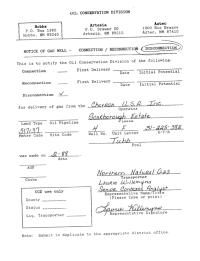 OIL CONSERVATION DIVISION
Hobbs
P.O. Box 1980
Hobbs, NM 88240
Artesia
P.O. Drawer DD
Artesia, NM 88211
Aztec
1000 Rio Brazos
Aztec, NM 87410
NOTICE OF GAS WELL - CONNECTION / RECONNECTION / DISCONNECTION
This is to notify the Oil Conservation Division of the following:
Connection First Delivery
Date Initial Potential
Reconnection First Delivery
Date Initial Potential
Disconnection ✓
for delivery of gas from the Chevron U.S.A. Inc.
Operator
Scarborough Estate
Lease
Land Type Oil Pipeline
Meter Code Site Code Well No. Unit Letter S-T-R
Tubb
Pool
was made on
date
AOF
Choke
Northern Natural Gas
Transporter
OCD use only
County
Status
Liq. Transporter
Representative Name/Title
(Please type or print)
Representative Signature
Note: Submit in duplicate to the appropriate district office.